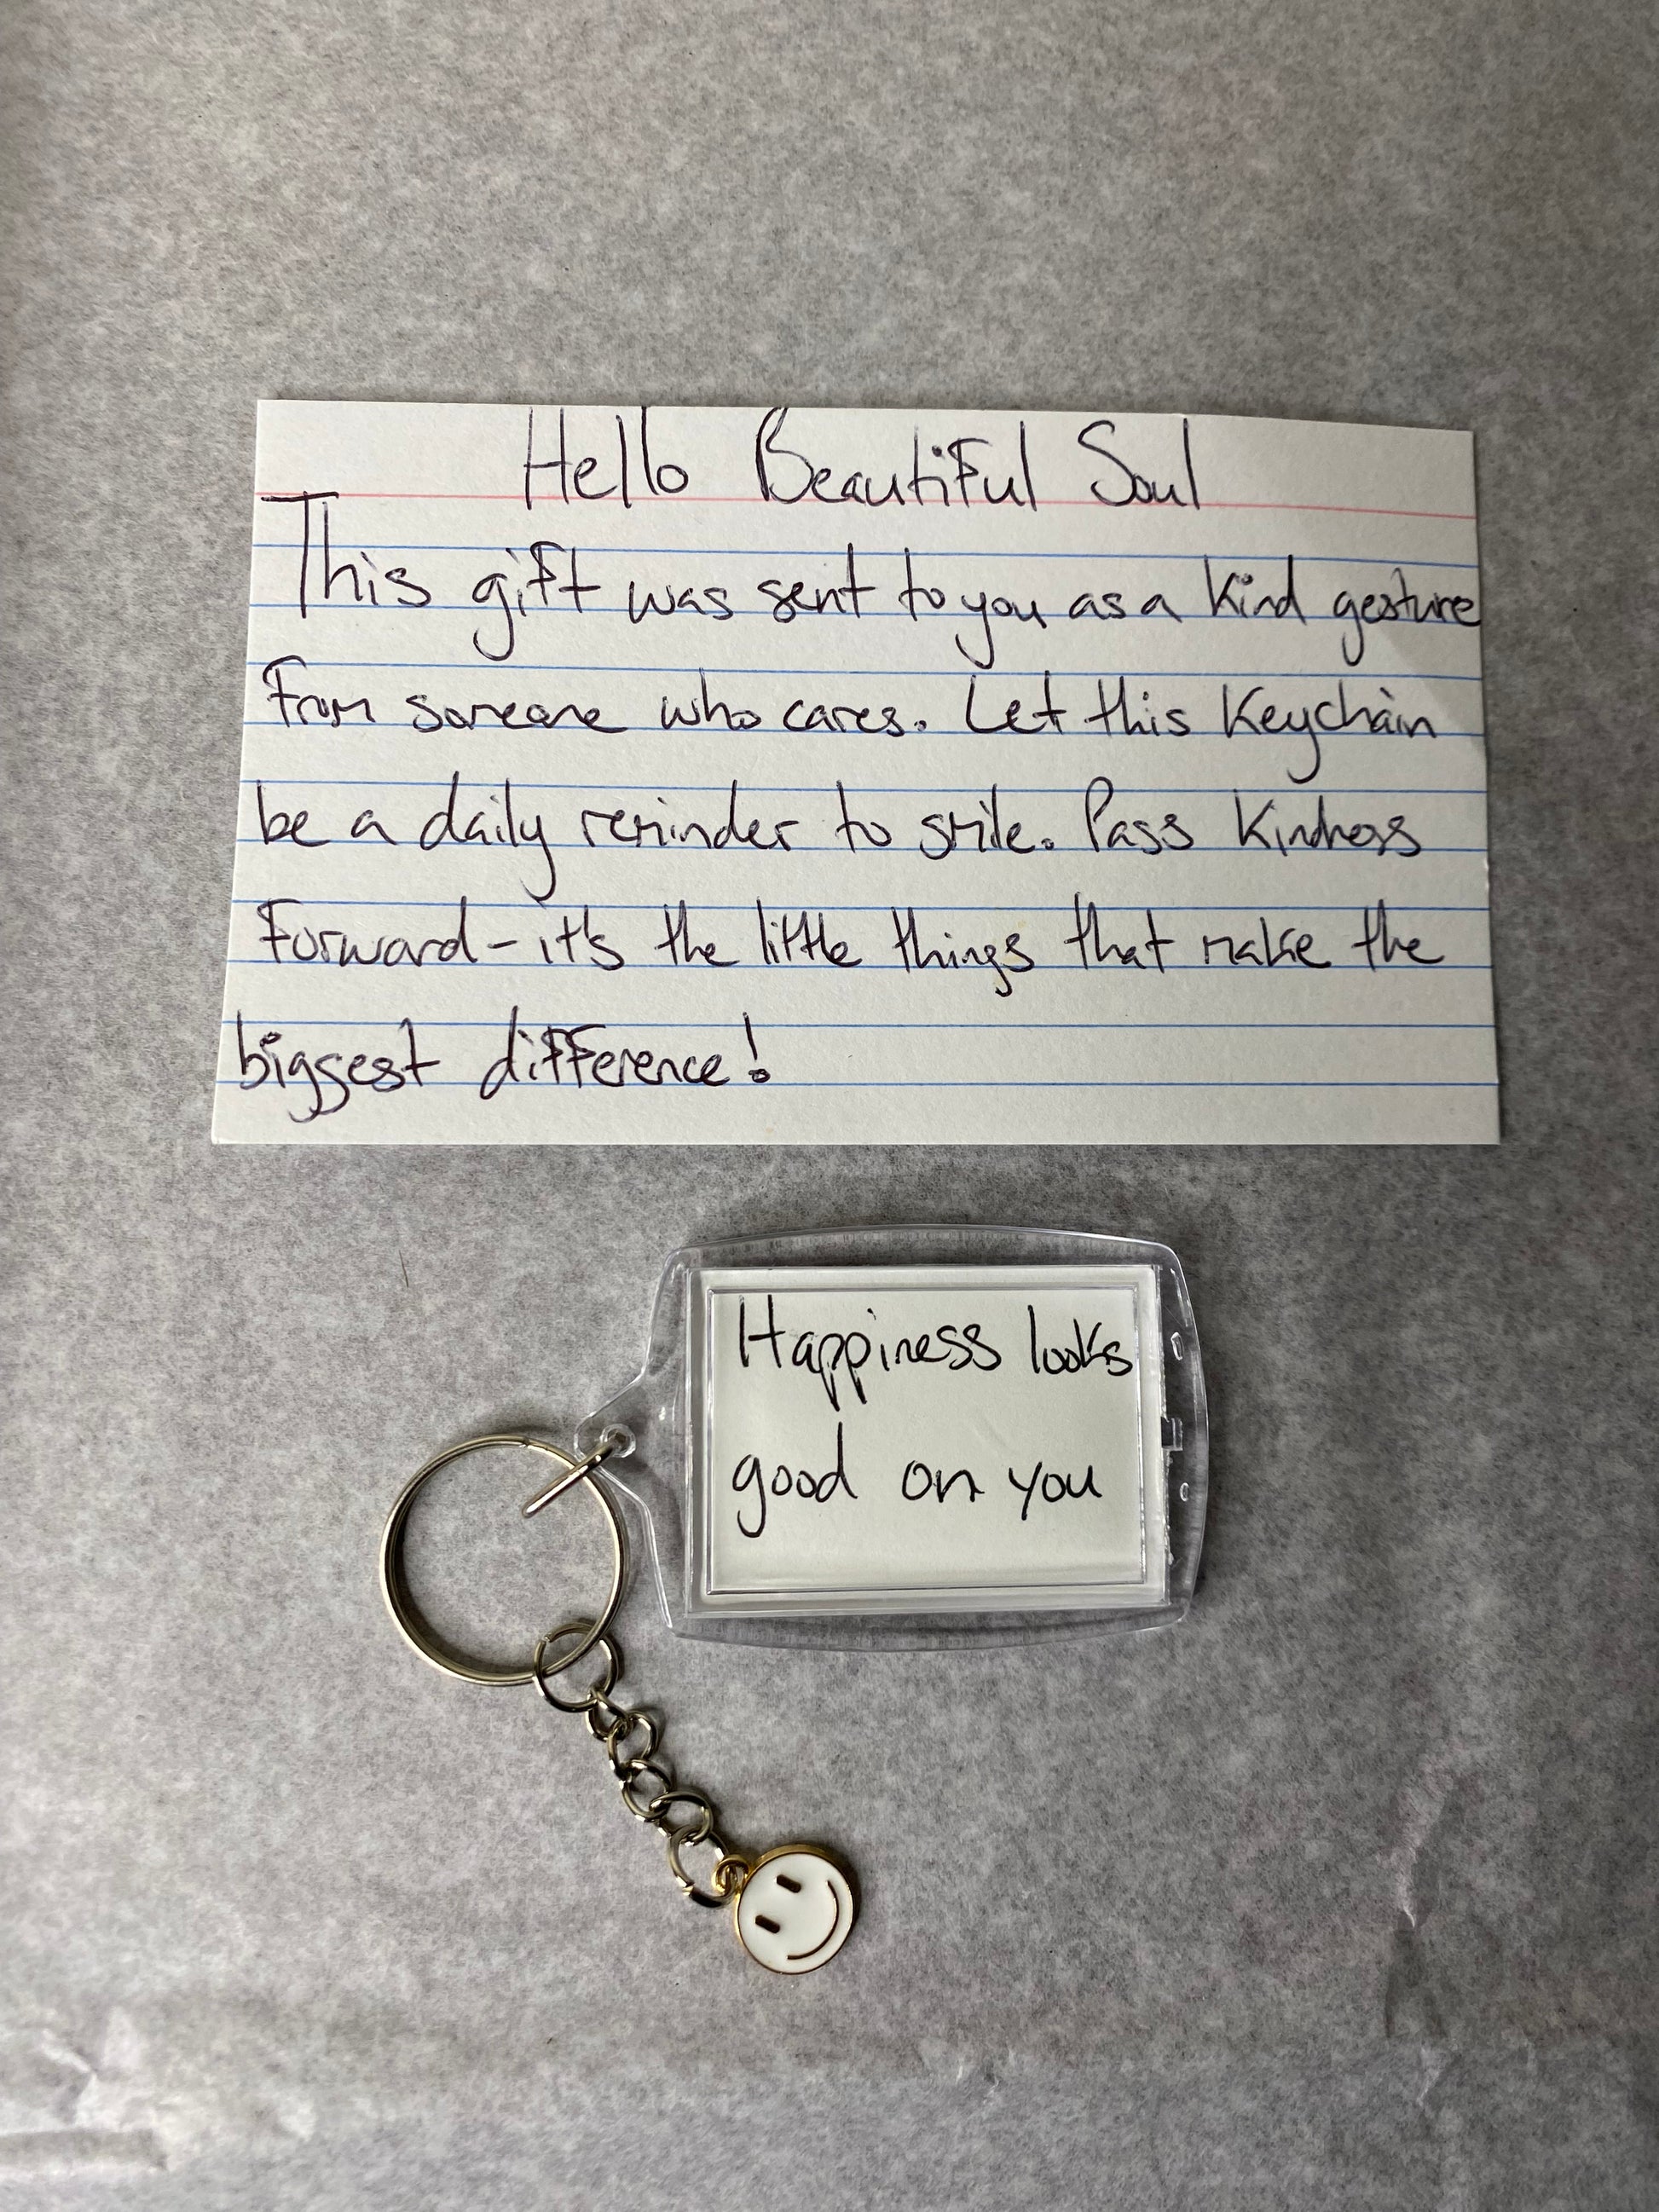 Hello Beautiful Soul
This gift was sent to you as a kind gesture
From someone who cares. Let this Keychain
be a daily reminder to smile. Pass Kindness
Forward - it's the little things that make the
biggest difference!
Happiness looks
good on you